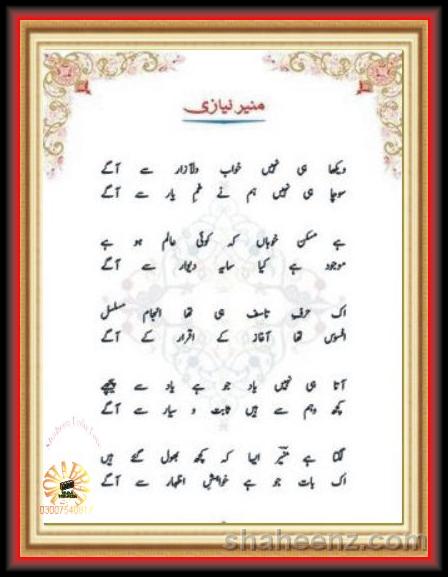 منیر نیازی
دیکھا ہی نہیں خواب دلآزار سے آگے
سوچا ہی نہیں ہم نے غمِ یار سے آگے
ہے مسکن خوباں کہ کوئی عالم ہو ہے
موجود ہے کیا سایہ دیوار سے آگے
اک حرفِ تاسف ہی تھا انجام مسلسل
افسوس تھا آغاز کے اقرار کے آگے
آتا ہی نہیں یاد جو ہے یاد سے پیچھے
کچھ وہم سے ہیں ثابت و سیار سے آگے
لگتا ہے منیرؔ ایسا کہ کچھ بھول گئے ہیں
اک بات جو ہے خواہشِ اظہار سے آگے
03007540817
shaheenz.com